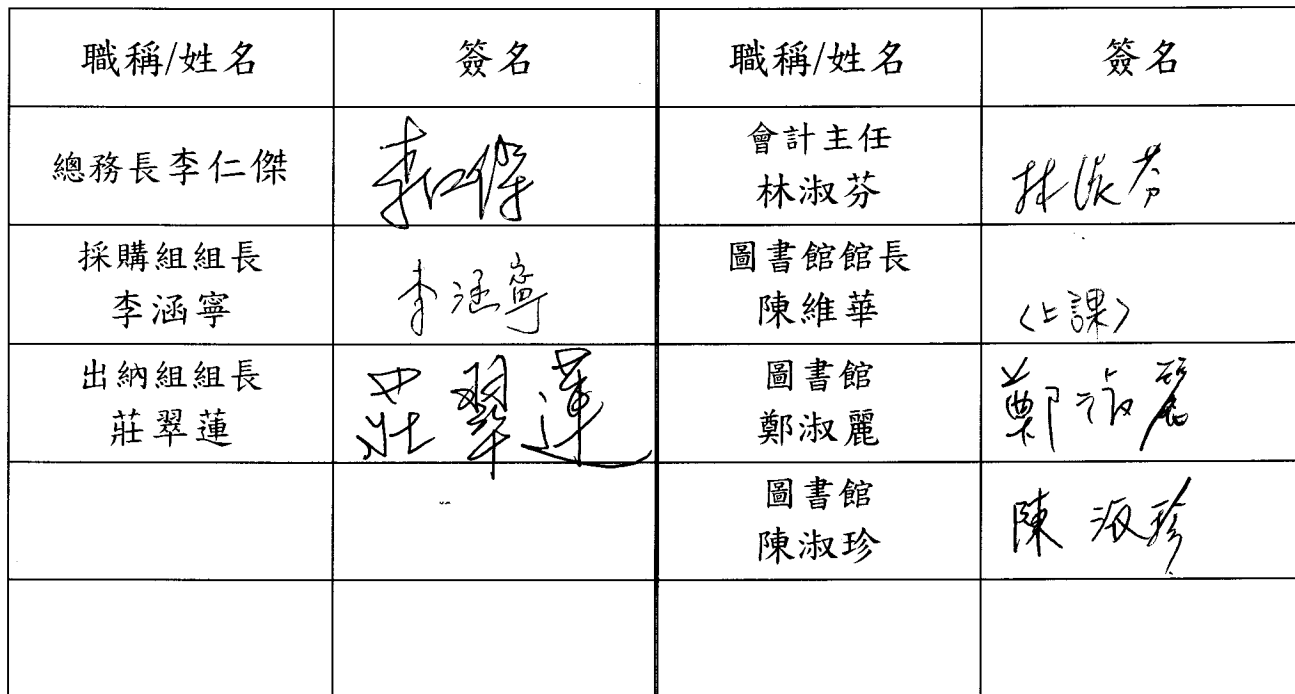 職稱/姓名 簽名 職稱/姓名 簽名
總務長李仁傑 李仁傑 會計主任
林淑芬 林淑芬
採購組組長
李涵寧 李涵寧 圖書館館長
陳維華 〈上課〉
出納組組長
莊翠蓮 莊翠蓮 圖書館
鄭淑麗 鄭淑麗
圖書館
陳淑珍 陳淑珍